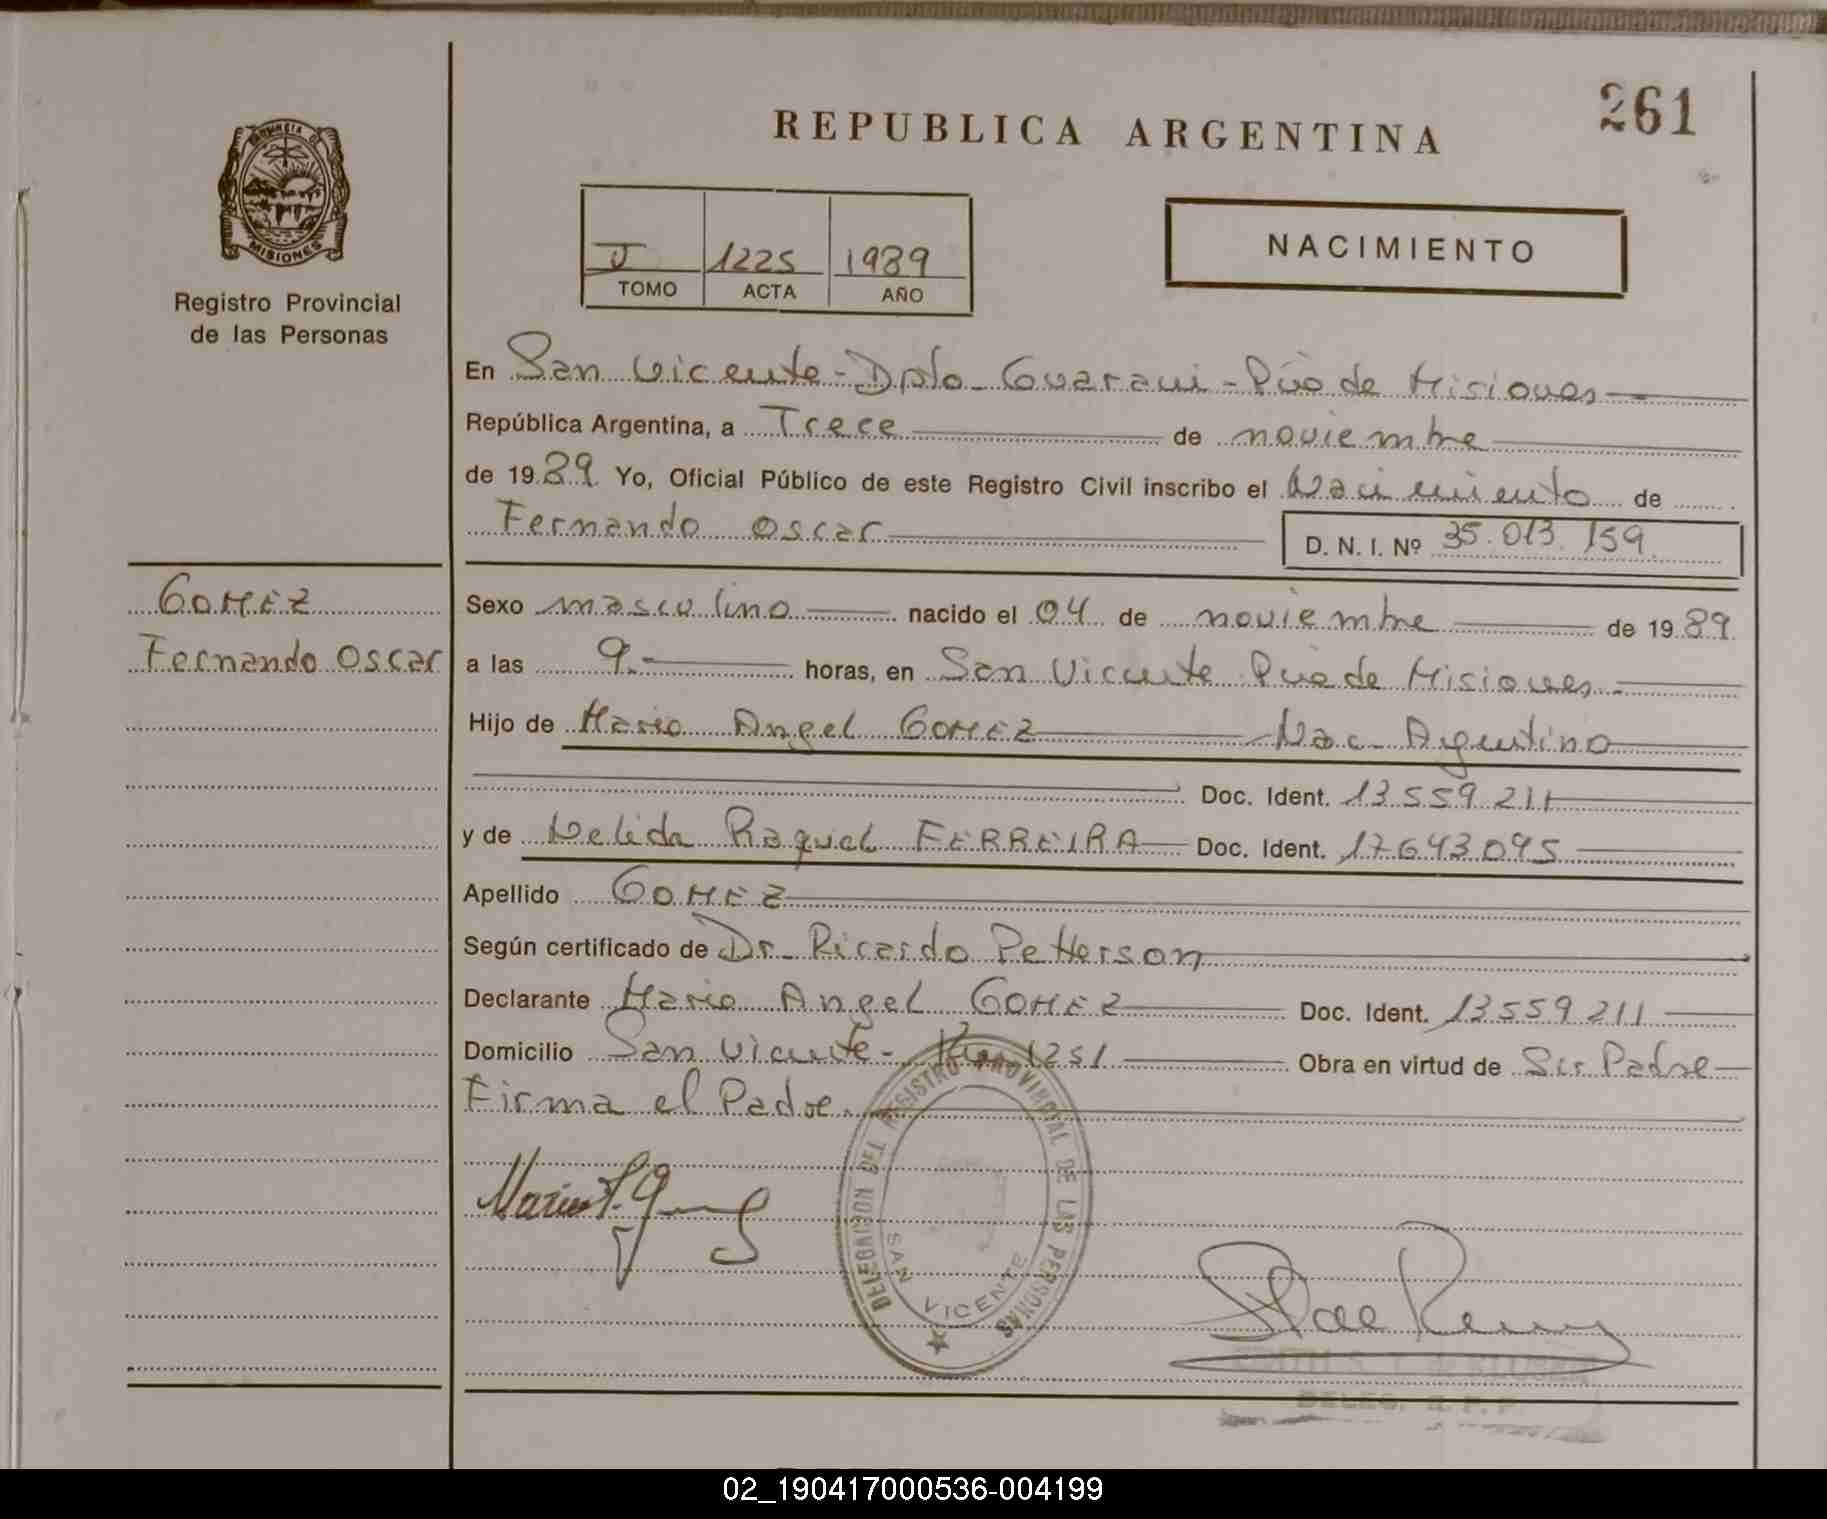 261
REPUBLICA ARGENTINA
PROVINCIA D
MISIONES
Registro Provincial
de las Personas
J 1225 1989
TOMO ACTA AÑO
NACIMIENTO
En San Vicente - Dpto Guarani - Pcia de Misiones
República Argentina, a Trece de noviembre
de 1989 Yo, Oficial Público de este Registro Civil inscribo el Nacimiento de
Fernando Oscar D. N. I. Nº 35.013.159
GOMEZ
Fernando Oscar
Sexo masculino nacido el 04 de noviembre de 1989
a las 9.- horas, en San Vicente Pcia de Misiones.
Hijo de Mario Angel GOMEZ - Nac. Argentino
Doc. Ident. 13559211
y de Nelida Raquel FERREIRA Doc. Ident. 17643095
Apellido GOMEZ
Según certificado de Dr. Ricardo Petterson
Declarante Mario Angel GOMEZ Doc. Ident. 13559211
Domicilio San Vicente - Km 1251 Obra en virtud de Ser Padre
Firma el Padre.
DELEGACION DEL REGISTRO PROVINCIAL DE LAS PERSONAS
SAN VICENTE
DELEG. R. P. P.
02_190417000536-004199